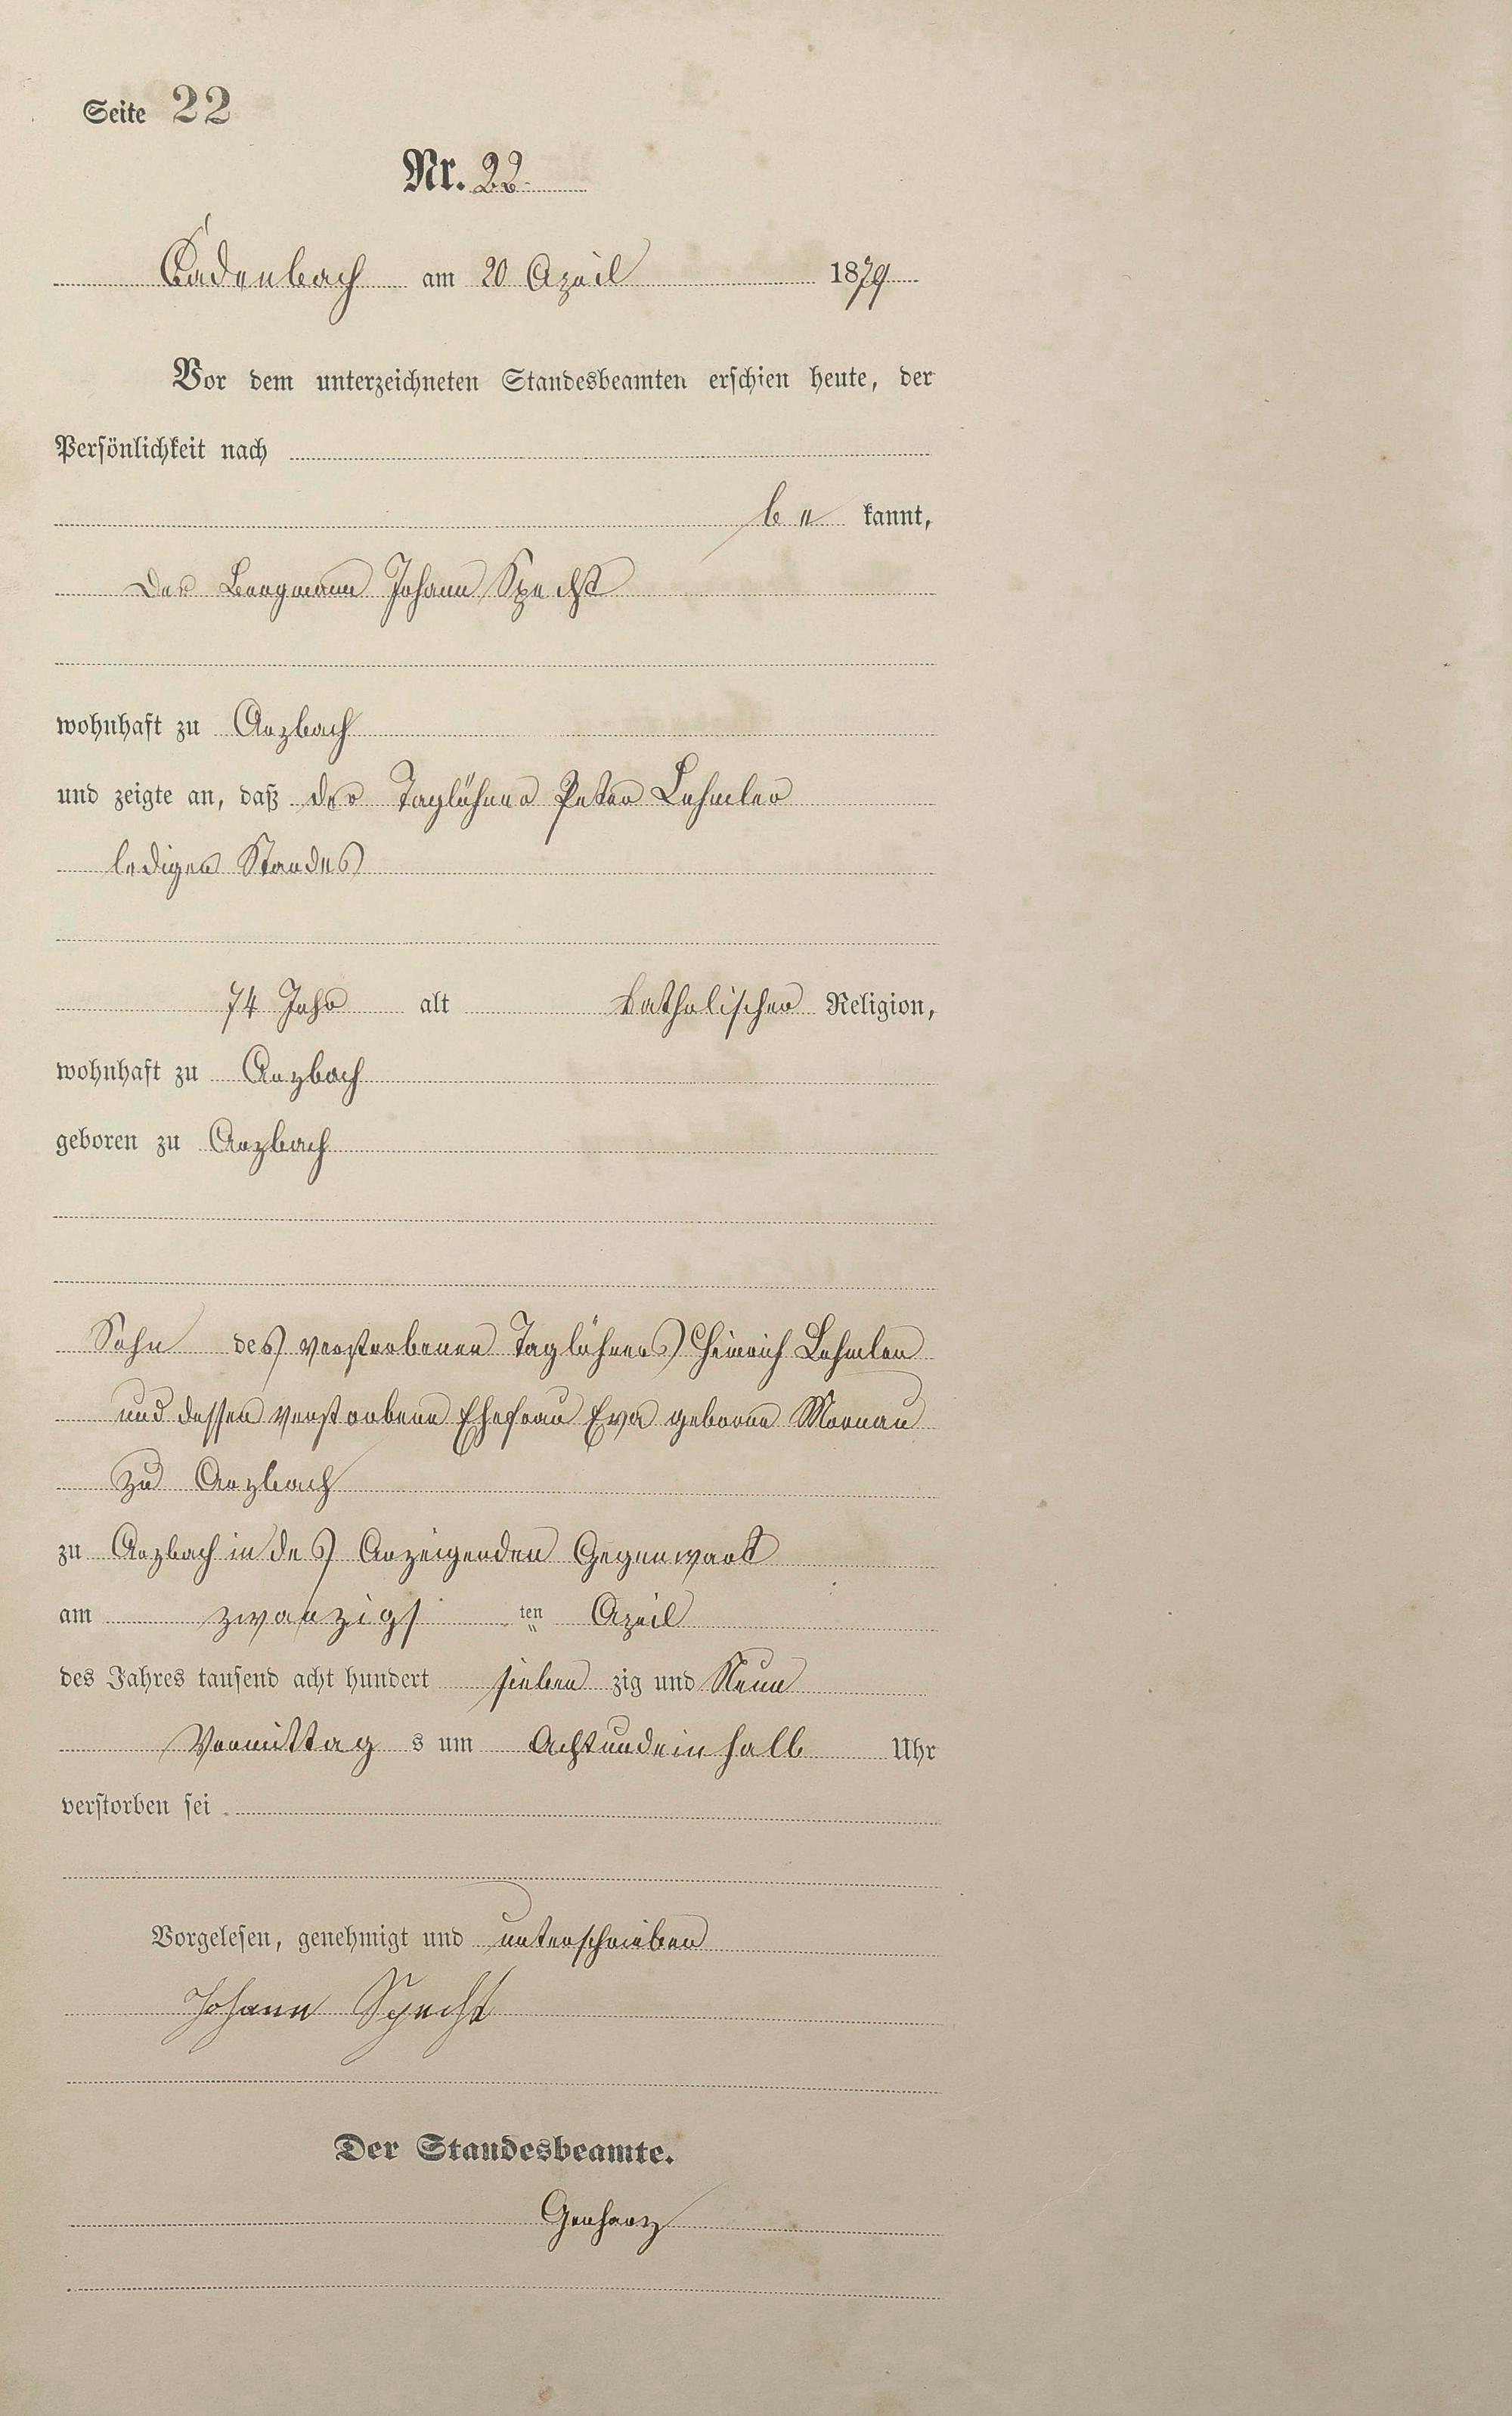 Seite 22
Nr. 22.
Cadenbach am 20 April 1879
Vor dem unterzeichneten Standesbeamten erschien heute, der
Persönlichkeit nach
be kannt,
der Bergmann Johann Specht
wohnhaft zu Arzbach
und zeigte an, daß der Taglöhner Peter Lehmler
ledigen Standes
74 Jahr alt katholischer Religion,
wohnhaft zu Arzbach
geboren zu Arzbach
Sohn des verstorbenen Taglöhners Heinrich Lehmler
und dessen verstorbene Ehefrau Eva geborne
zu Arzbach
zu Arzbach in des Anzeigenden Gegenwart
am zwanzigs ten April
des Jahres tausend acht hundert sieben zig und Neun
Vormittag s um Achtundeinhalb Uhr
verstorben sei
Vorgelesen, genehmigt und unterschrieben
Johann Specht
Der Standesbeamte.
Gerharz